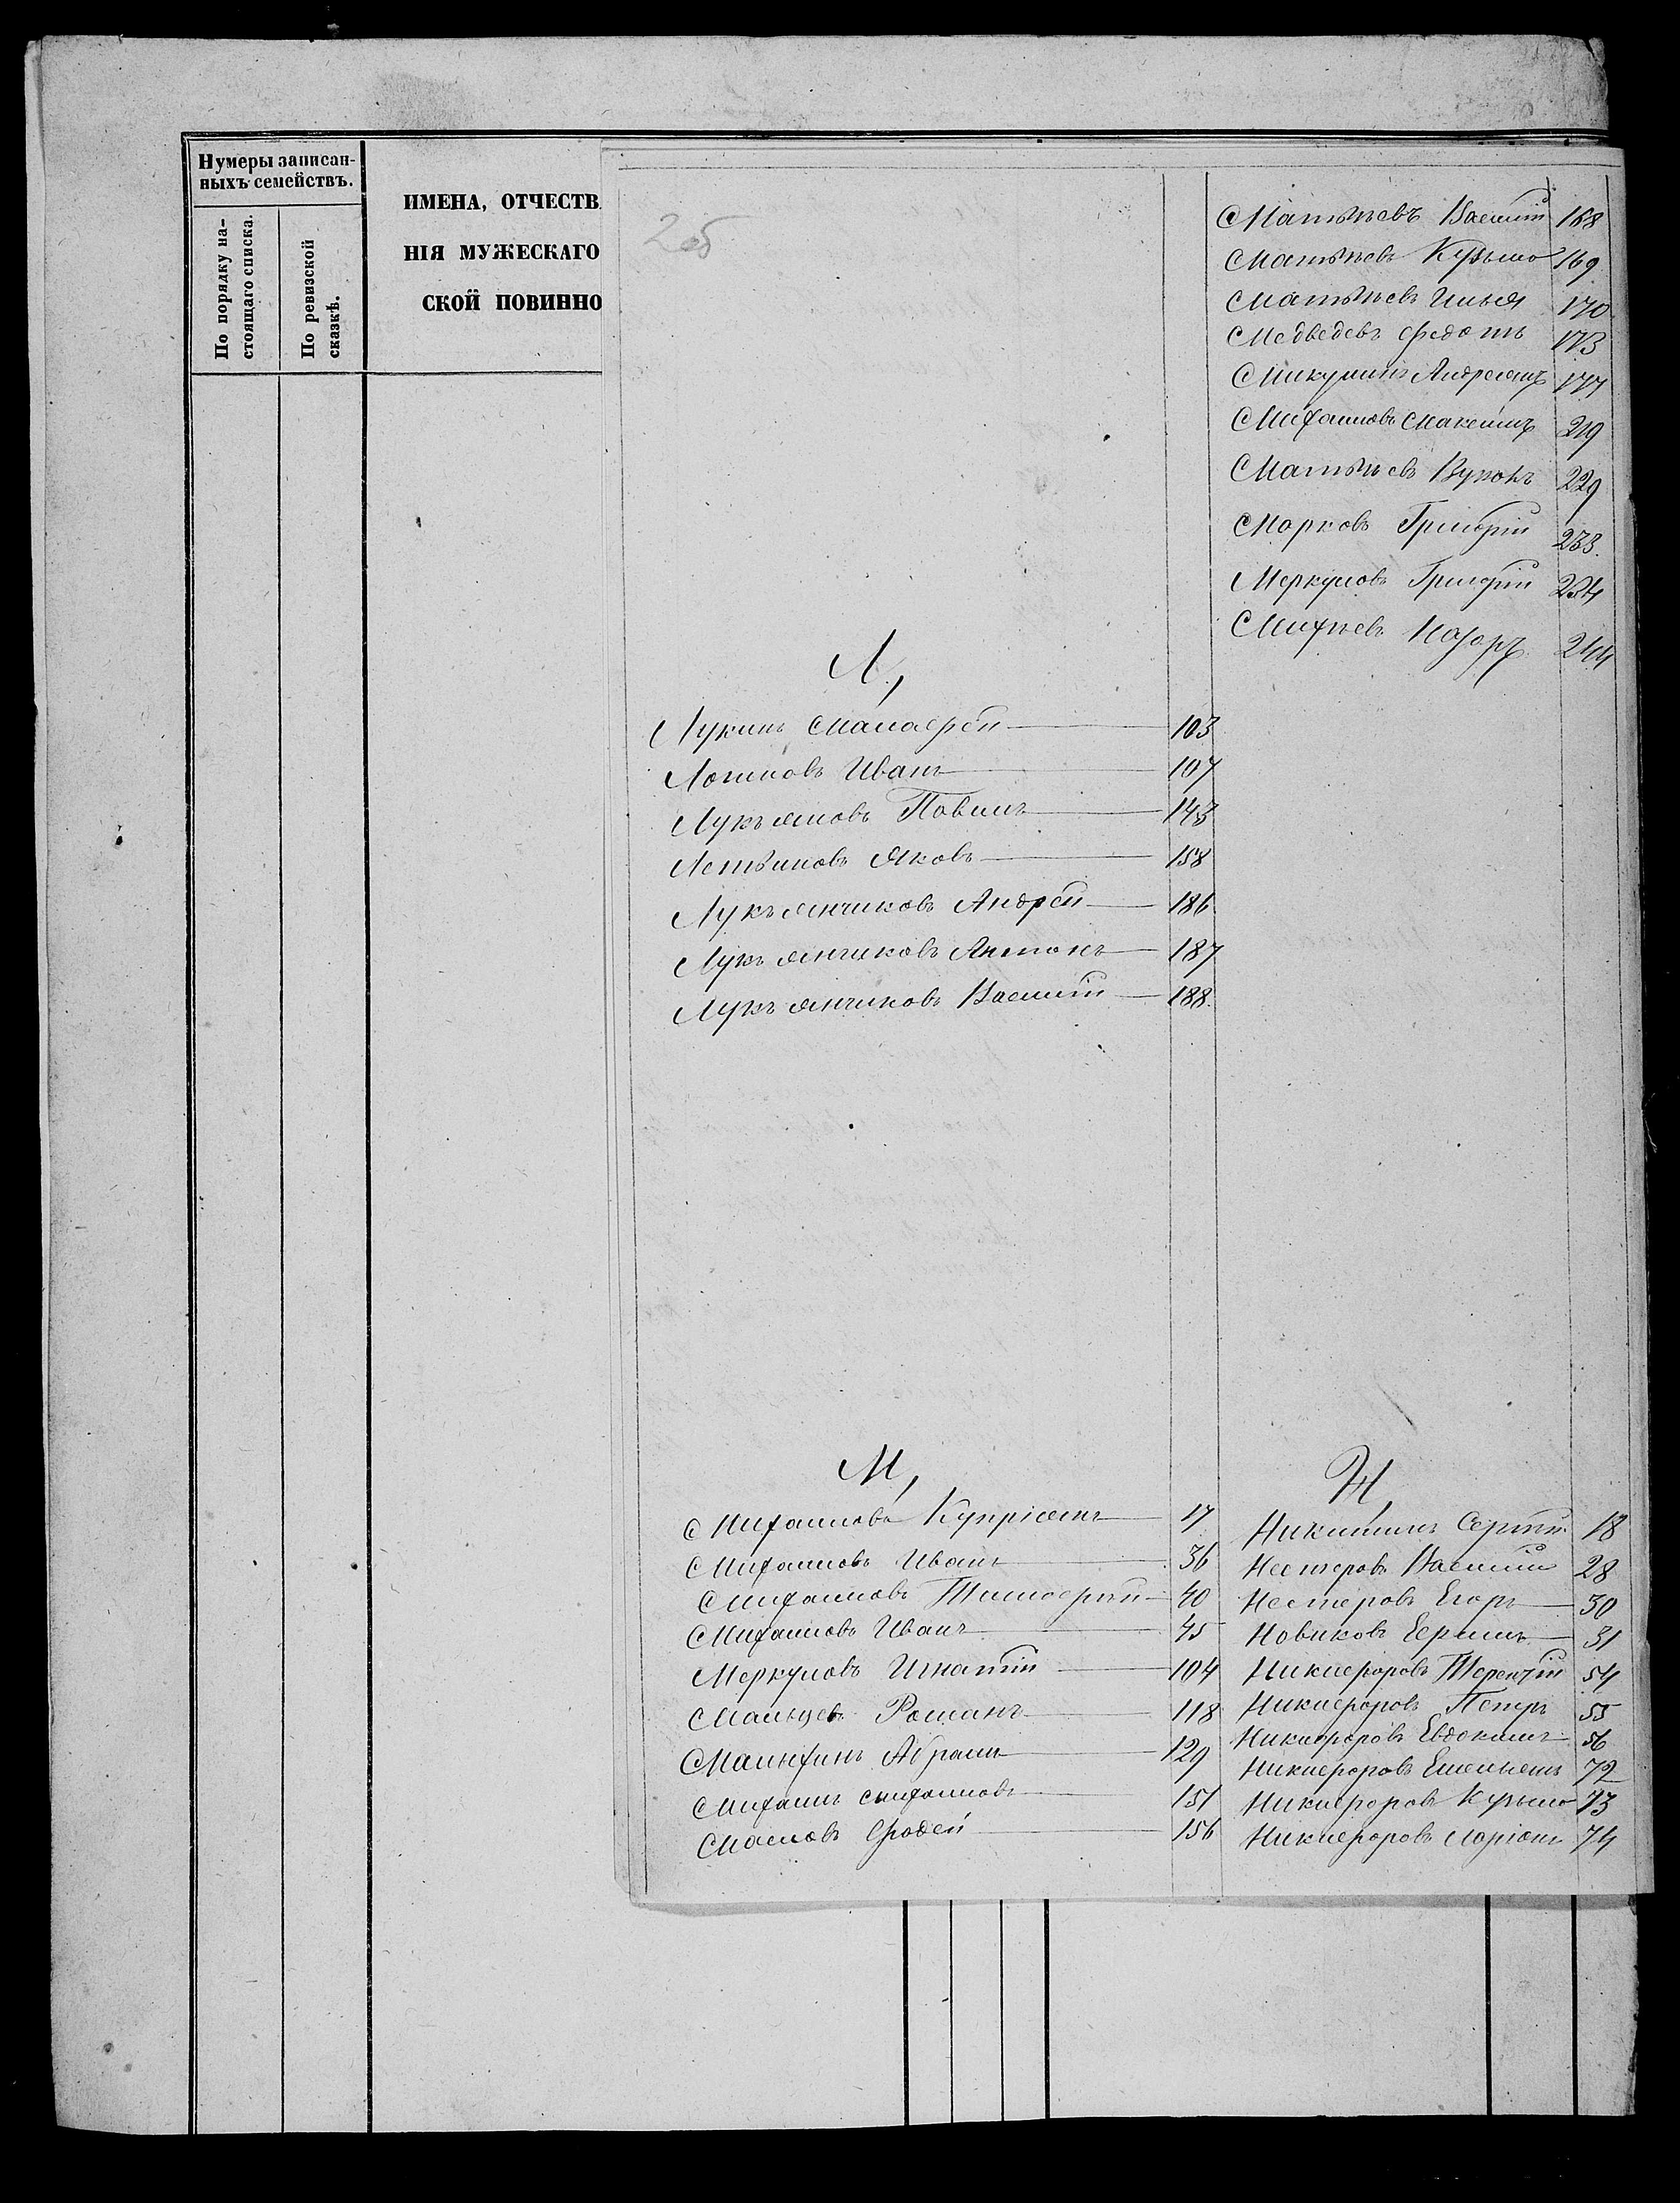 Нумеры записан-
ныхъ семействъ.
По порядку на-
стоящаго списка.
По ревизской
сказкѣ.
ИМЕНА, ОТЧЕСТВ
НІЯ МУЖЕСКАГО
СКОЙ ПОВИННО
2об
Л,
Лукинъ Малафей 103
Логиновъ Иванъ 107
Лукъяновъ Павилъ 143
Яковъ 158
Лукъянчиковъ Андрей 186
Лукъянчиковъ Антонъ 187
Лукъянчиковъ Василій 188.
М,
Михаиловъ Купріянъ 17
Михаиловъ Иванъ 36
Михаиловъ Тимофѣй 40
Михаиловъ Иванъ 45
Меркуловъ Игнатій 104
Мальцевъ Романъ 118
Малыхинъ Абрамъ 129
Михаилъ Михаиловъ 151
Масловъ Фадей 156
Матвѣевъ Василій 168
Матвѣевъ Кузьма 169
Матвѣевъ Илья 170
Медведевъ Федотъ 173
Микулинъ 177
Михаиловъ Максимъ 219
Матвѣевъ 229
Марковъ Григорій 233.
Меркуловъ Григорій 234
Михѣевъ Назаръ 244
Н,
Никитинъ Сергѣй 18
Нестеровъ Василій 28
Нестеровъ Егоръ 30
Новиковъ Ефимъ 31
Никифоровъ Терентій 54
Никифоровъ Петръ 55
Никифоровъ Евдокимъ 56
Никифоровъ Емельянъ 72
Никифоровъ Кузьма 73
Никифоровъ Ларіонъ 74